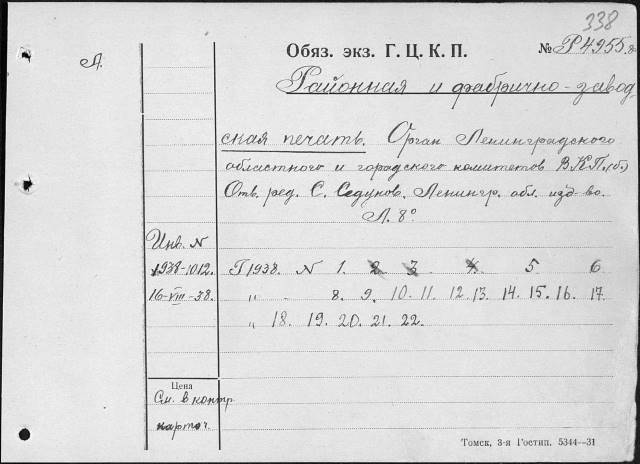 338
Обяз. экз. Г. Ц. К. П. № Р4955
Л.
Районная и фабрично-завод
ская печать. Орган Ленинградского
областного и городского комитетов В.К.П.(б)
Отв. ред. С. Седунов. Ленингр. обл. изд-во.
Л. 8°
Инв. N
1938-1012. Г 1938. N 1. 2 3. 4. 5 6
16-VIII-38. " - 8. 9. 10. 11. 12. 13. 14. 15. 16. 17
" 18. 19. 20. 21. 22.
Цена
См. в контр
карточ.
Томск, 3-я Гостип. 5344—31